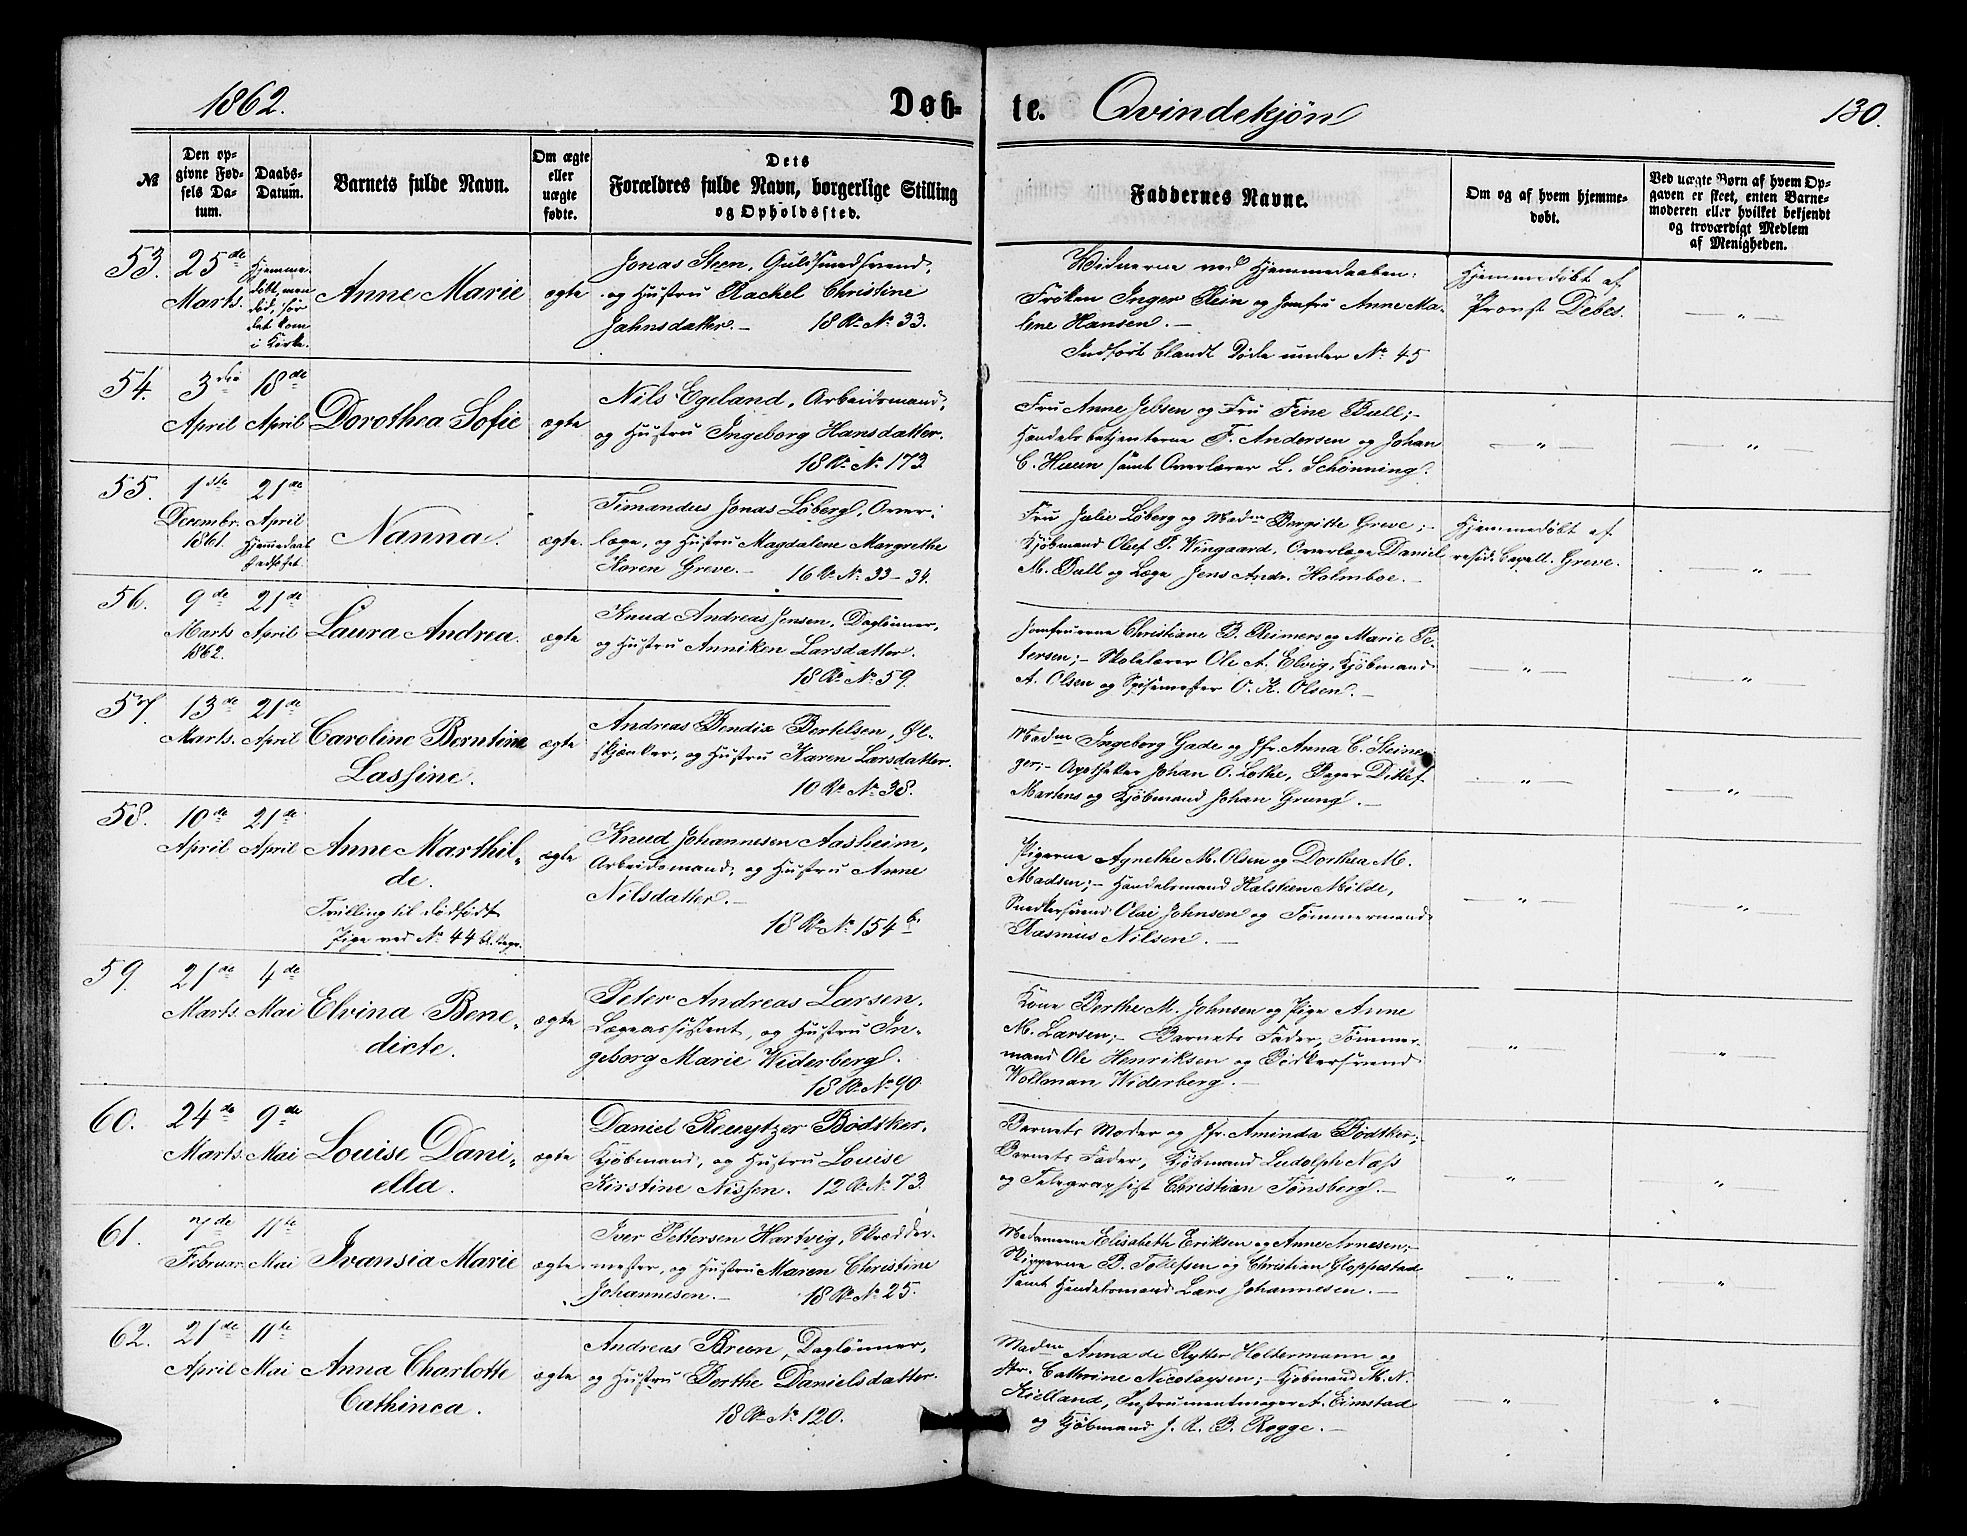 1862.
Døb-
te.
Qvindekjøn
130.
№
Den op-
givne Fød-
sels Da-
tum.
Daabs-
Datum.
Barnets fulde Navn.
Om ægte
eller
uægte
fødte.
Dets
Forældres fulde Navn, borgerlige Stilling
og Opholdssted.
Faddernes Navne.
Om og af hvem hjemme-
døbt.
Ved uægte Børn af hvem Op-
gaven er skeet, enten Barne-
moderen eller hvilket bekjendt
og troværdigt Medlem
af Menigheden.
53.
25de
Marts.
Hjemme-
døbt, men
død, før
det kom
i Kirke.
Anne Marie
ægte
Jonas Steen, Guldsmedsvend,
og Hustru Rachel Christine
Jahnsdatter.- 18 R. № 33.
Vidnerne ved Hjemmedaaben:
Frøken Inger Rein og Jomfru Anne Ma-
lene Hansen.-
Indført blandt Døde under № 45
Hjemmedøbt af
Provst Debes.
"
54.
3die
April
18de
April
Dorothea Sofie
ægte
Nils Egeland, Arbeidsmand,
og Hustru Ingeborg Hansdatter.
18 R. № 173
Fru Anne Jebsen og Fru Tine Bull;-
Handelsbetjenterne F. Andersen og Johan
C. Huun samt Overlærer L. Schønning.
"
"
55.
1ste
Decembr.
1861.
21de
April
Hjemmedaab
stadfæt.
Nanna.
ægte.
Timandus Jonas Løberg, Over-
læge, og Hustru Magdalene Margrethe
Karen Greve.- 16 R. № 33-34.
Fru Julie Løberg og Madm Birgitte Greve;-
Kjøbmand Oluf F. Wingaard, Overlæge Daniel
M. Bull og Læge Jens Andr. Holmboe.-
Hjemmedøbt af
resid. Capell. Greve.
"
56.
9de
Marts
1862.
21de
April
Laura Andrea.
ægte
Knud Andreas Jensen, Daglønner,
og Hustru Anniken Larsdatter.
18 R. № 59.
Jomfruerne Christiane B. Reimers og Marie Pe-
tersen;- Skolelærer Ole A. Elvig, Kjøbmand
A. Olsen og Spisemester O. K. Olsen.-
"
"
57.
13de
Marts.
21de
April
Caroline Berntine
Lassine.
ægte
Andreas Bendix Bertelsen, Øl-
skjænker, og Hustru Karen Larsdatter.
10 R. № 38.
Madm Ingeborg Gade og Jfr. Anna C. Steine-
ger;- Apotheker Johan O. Lothe, Bager Ditlef
Martens og Kjøbmand Johan Grung.-
"
"
58.
10de
April
21de
April
Anne Marthil-
de.
Tvilling til dødfødt
Pige ved № 44 bl. Begr.
ægte
Knud Johannesen Aasheim,
Arbeidsmand, og Hustru Anne
Nilsdatter.-
18 R. № 154 b.
Pigerne Agnethe M. Olsen og Dorthea M.
Madsen;- Handelsmand Halsken Milde,
Snedkersvend Olai Johnsen og Tømmermand
Rasmus Nilsen.-
"
"
59.
21de
Marts.
4de
Mai
Elvina Bene-
dicte.
ægte
Peter Andreas Larsen,
Lægeassistent, og Hustru In-
geborg Marie Widerberg.
18 R. № 90.
Kone Berthe M. Johnsen og Pige Anne
M. Larsen;- Barnets Fader, Tømmer-
mand Ole Henriksen og Bødkersvend
Wollman Widerberg.-
"
"
60.
24de
Marts.
9de
Mai
Louise Dani-
ella.
ægte
Daniel Reuytzer Bødtker,
Kjøbmand, og Hustru Louise
Kirstine Nissen. 12 R. № 73.
Barnets Moder og Jfr. Aminda Bødtker;
Barnets Fader, Kjøbmand Ludolph Næss
og Telegraphist Christian Tønsberg.-
"
"
61.
7de
Februar.
11te
Mai
Ivansia Marie
ægte
Iver Pettersen Hartvig, Skrædder-
mester, og Hustru Maren Christine
Johannesen.- 18 R. № 25.
Madamerne Elisabeth Eriksen og Anne Arnesen;-
Skipperne B. Tollefsen og Christian Gloppestad
samt Handelsmand Lars Johannesen.-
"
"
62.
21de
April
11te
Mai
Anna Charlotte
Cathinca.
ægte
Andreas Breen, Daglønner,
og Hustru Berthe Danielsdatter.
18 R. № 120.
Madm Anna de Rytter Holtermann og
Jfr. Cathrine Nicolaysen;- Kjøbmand M. N.
Kielland, Instrumentmager A. Eimstad
og Kjøbmand J. R. B. Rogge.-
"
"